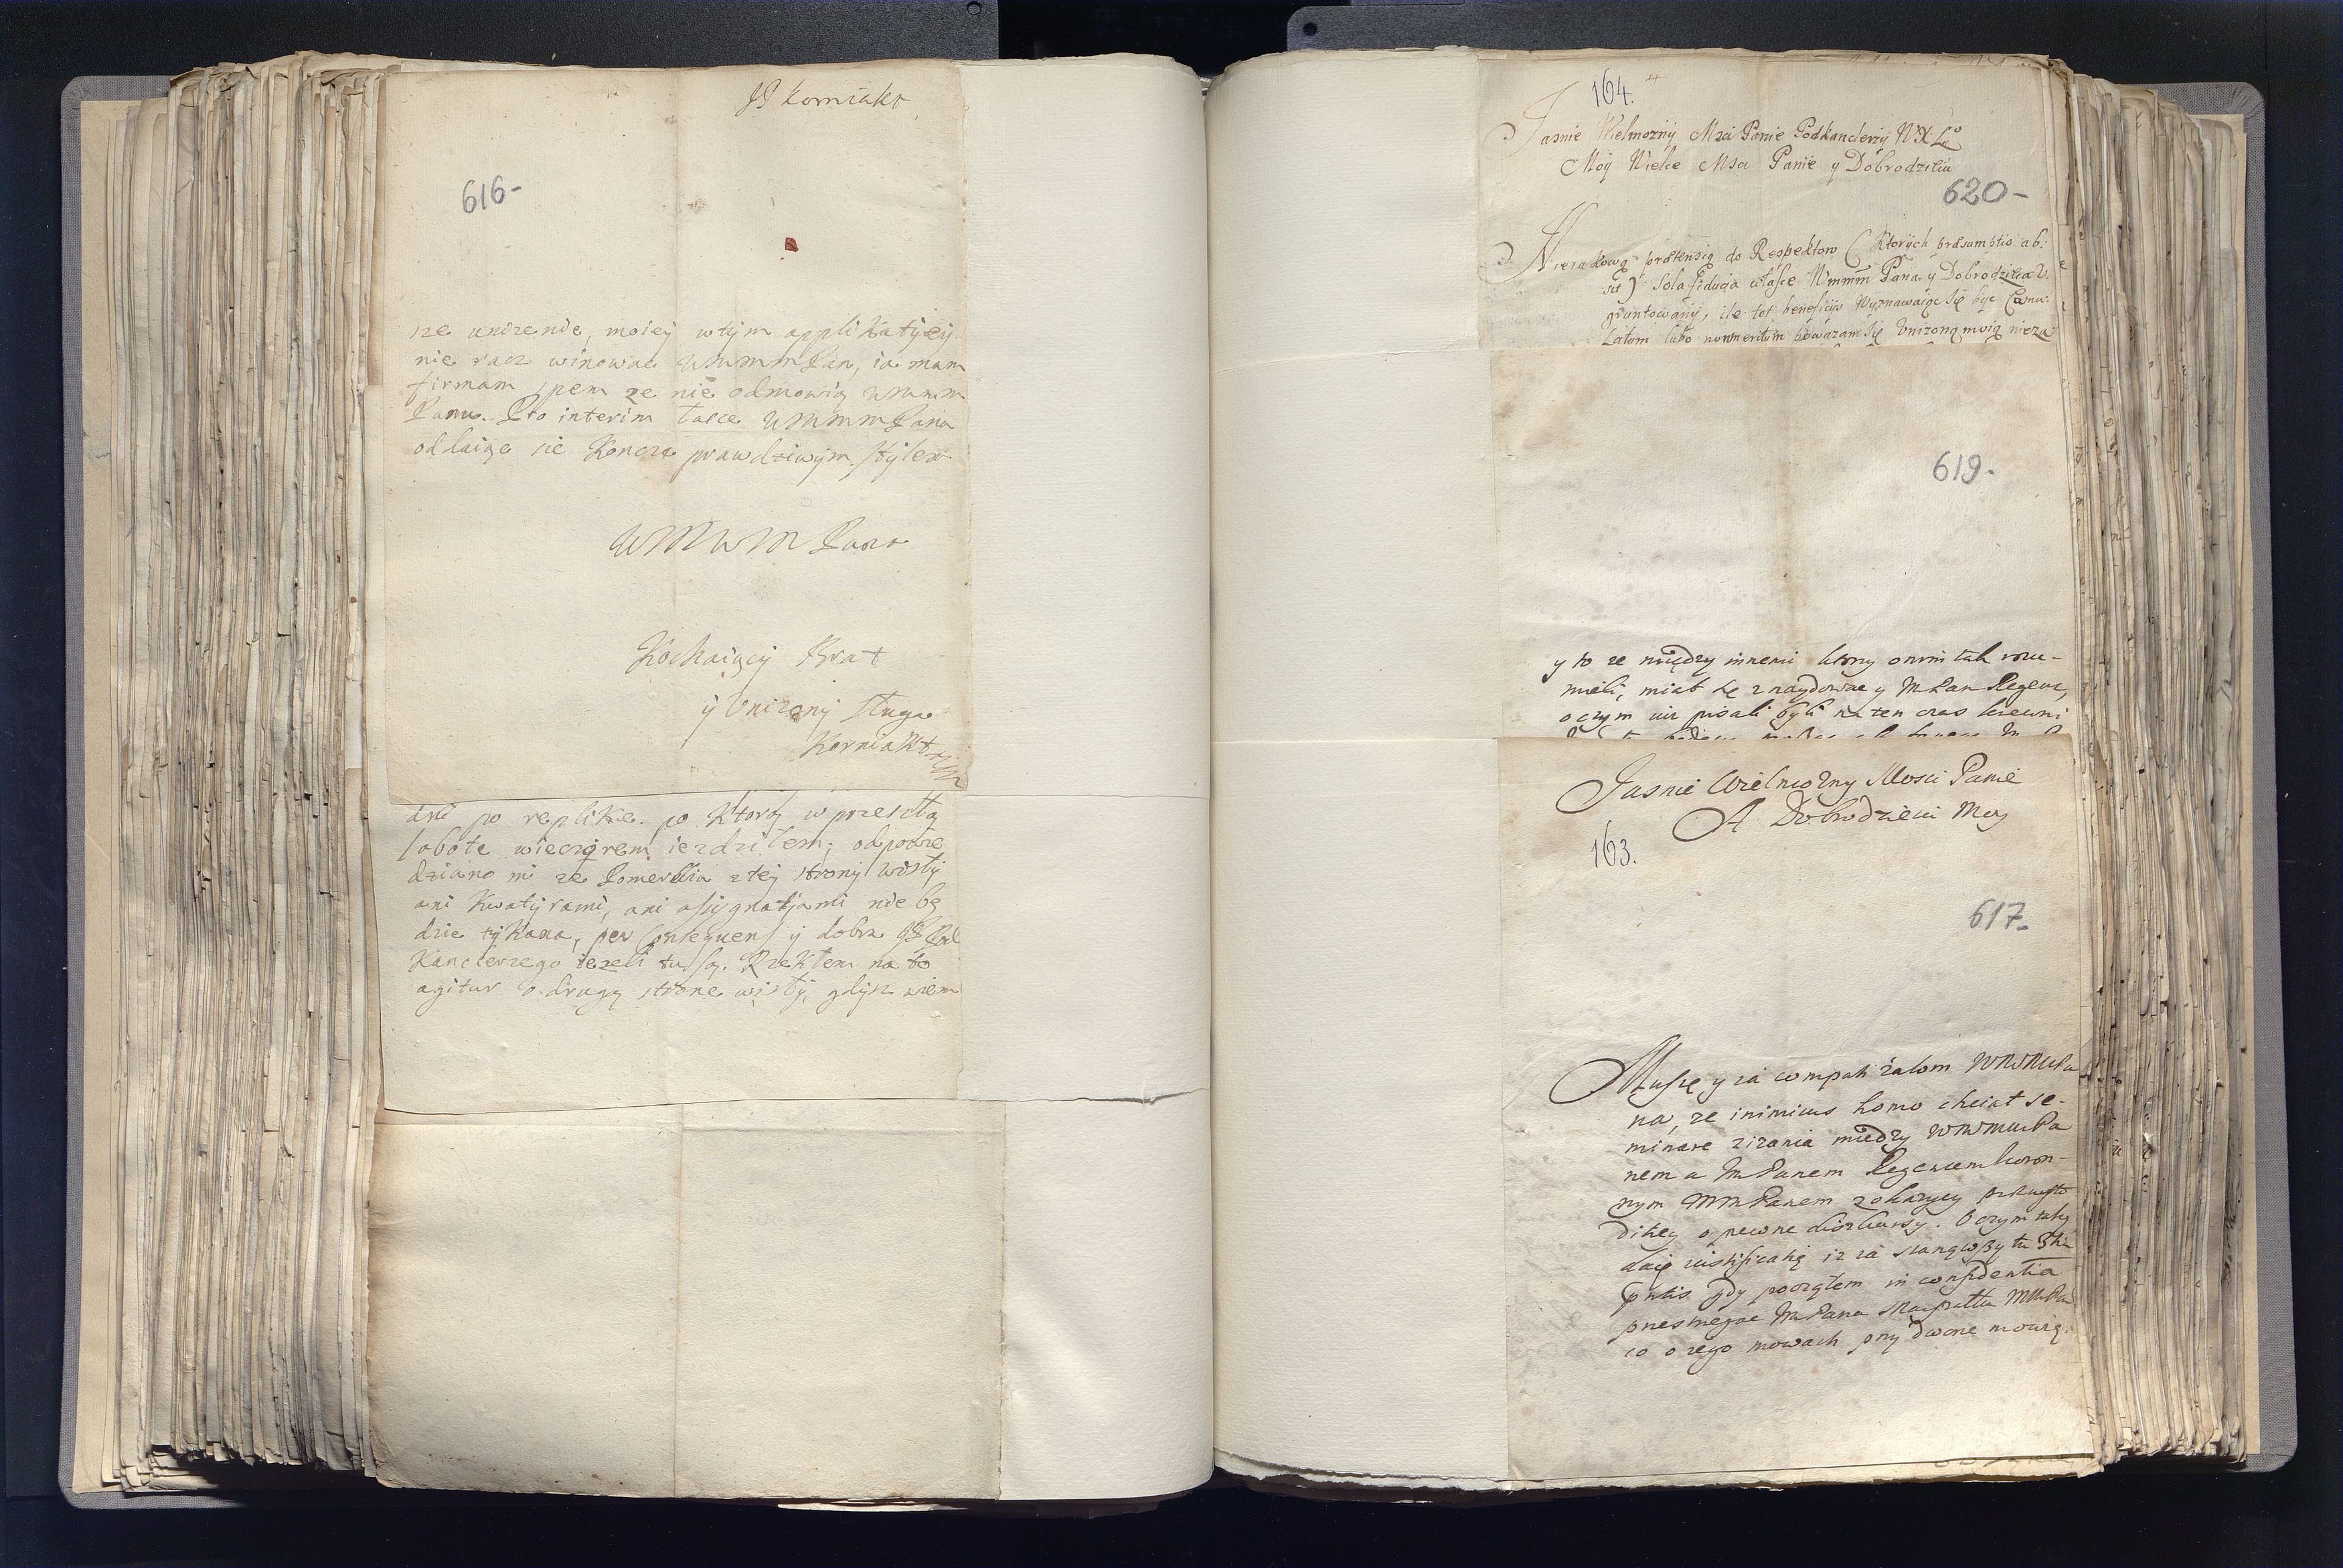 JP Korniakt
616-
sze unizenie, moiey wtym applikatiey
nie racz winowac WMMMPan, ia mam
firmam spem ze nie odmowią WMMM
Panu. Pro interim łasce WMMMPana
oddaiąc sie Koncze prawdziwym stylem
WMWM Pana
Kochaiący Brat
y Unizony Sługa
Korniakt
dni po replike. po Ktorą w przeszłą
sobote wieczorem iezdziłem; odpowie
dziano mi ze Pomerellia z tey strony wisły
ani Kwatyrami, ani assygnatjami nie bę
dzie tykana, per Consequens y dobra JP Pod
Kanclerzego iezeli tu są. Rzekłem na to
agitur o drugą strone wisły, gdysz wiem
164.
Jasnie Wielmozny Msci Panie Podkanclerzy WXLo
Moy Wielce Msci Panie y Dobrodzieiu
620-
prætensią do Respektow (Ktorych præsumptio ab:
sit) sola fiducia w łasce WMMM Pana y Dobrodzieia
gruntowany, ile tot beneficijs Wyznawaiąc się byc Cumu:
latum lubo non meritum powazam się Unizoną moią nieza
619-
y to ze między innemi ktorzy onim tak rozu-
mieli, miał się znaydowac y MPan Regent,
oczym mi pisali byli na ten czas krewni
Jasnie Wielmozny Mosci Panie
A Dobrodzieiu Moy
163.
617-
Muszę y ia compati zalom WMMMPa
na, ze inimicus homo chciał se-
minare zizania między WMMMPa
nem a MPanem Regentem koron-
nym MMPanem z okazyey
o pewne diskursy. O czym taką
daię iustificatią iz ia stanąwszy tu 3tia
ptis gdy począłem in confidentia
przestrzegac MPana MMPa
co o iego mowach przy dworze mowią.